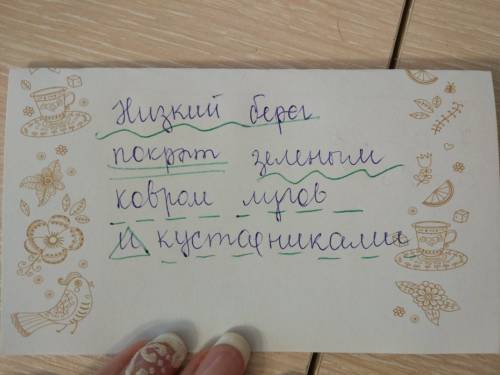 Низкий берег
покрыт зеленым
ковром лугов
и кустарниками